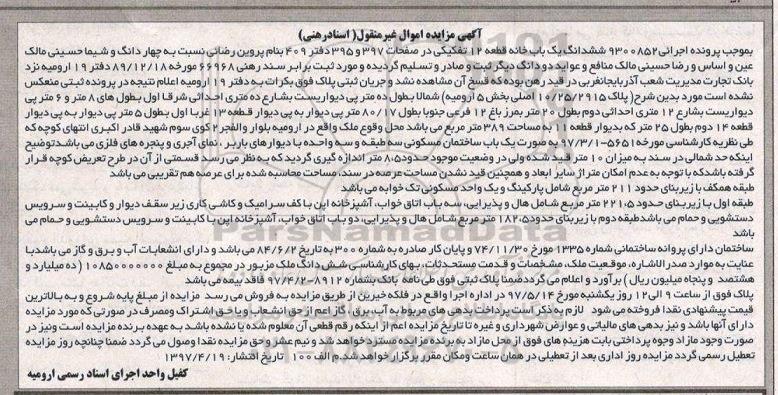 آگهی مزایده اموال غیرمنقول( اسنادرهنی)
بموجب پرونده اجرائی ۹۳۰۰۸۵۲ ششدانگ یک باب خانه قطعه ۱۲ تفکیکی در صفحات ۳۹۷ و ۳۹۵ دفتر ۴۰۹ بنام پروین رضائی نسبت به چهار دانگ و شیما حسینی مالک
عین و اساس و رضا حسینی مالک منافع و عواید دو دانگ دیگر ثبت و صادر و تسلیم گردیده و مورد ثبت برابر سند رهنی ۶۶۹۶۸ مورخه ۸۹/۱۲/۱۸ دفتر ۱۹ ارومیه نزد
بانک تجارت مدیریت شعب آذربایجانغربی در قید رهن بوده که فسخ آن مشاهده نشد و جریان ثبتی پلاک فوق بکرات به دفتر ۱۹ ارومیه اعلام نتیجه در پرونده ثبتی منعکس
نشده است مورد بدین شرح( پلاک ۲۵/۲۹۱۵ اصلی بخش ۵ ارومیه) شمالا بطول ده متر پی دیواریست بشارع ده متری احداثی شرقا اول بطول های ۸ متر و ۶ متر پی
دیواریست بشارع ۱۲ متری احداثی دوم بطول ۲۰ متر بمرز باغ ۱۲ فرعی جنوبا بطول ۸۰/۱۷ متر پی دیوار به پی دیوار قطعه ۱۳ غربا اول بطول ۵ متر پی دیوار به پی دیوار
قطعه ۱۴ دوم بطول ۲۵ متر که بدیوار قطعه ۱۱ به مساحت ۳۸۹ متر مربع می باشد محل وقوع ملک واقع در ارومیه بلوار والفجر ۲ کوی سوم شهید قادر اکبری انتهای کوچه که
طی نظریه کارشناسی مورخه ۹۷/۳/۱-۵۶۵۱ بصورت یک باب ساختمان مسکونی سه طبقه و سه واحده با دیوارهای باربر ، نمای آجری و پنجره های فلزی می باشدتوضیح
اینکه حد شمالی در سند به میزان ۱۰ متر قید شده ولی در وضعیت موجود حدود ۸.۵ متر اندازه گیری گردید که به نظر می رسد قسمتی از آن در طرح تعریض کوچه قرار
گرفته باشدکه با توجه به عدم امکان متراژ سایر ابعاد و همچنین قید نشدن مساحت عرصه در سند، مساحت محاسبه شده برای عرصه هم تقریبی می باشد
طبقه همکف با زیربنای حدود ۲۱۱ متر مربع شامل پارکینگ و یک واحد مسکونی تک خوابه می باشد
طبقه اول با زیربنای حدود ۲۲۱.۵ متر مربع شامل هال و پذیرایی، سه باب اتاق خواب، آشپزخانه اپن با کف سرامیک و کاشی کاری زیر سقف دیوار و کابینت و سرویس
دستشویی و حمام می باشدطبقه دوم با زیربنای حدود۱۸۲.۵ متر مربع شامل هال و پذیرایی، دو باب اتاق خواب، آشپزخانه اپن با کابینت و سرویس دستشویی و حمام می
باشد
ساختمان دارای پروانه ساختمانی شماره ۱۳۳۵ مورخ ۷۴/۱۱/۳۰ و پایان کار صادره به شماره ۳۰۰ به تاریخ ۸۴/۶/۲ می باشد و دارای انشعابات آب و برق و گاز می باشدبا
عنایت به موارد صدر الاشاره، موقعیت ملک، مشخصات و قدمت مستحدثات، بهای کارشناسی شش دانگ ملک مزبور در مجموع به مبلغ ۱۰۸۵۰۰۰۰۰۰۰ ( ده میلیارد و
هشتصد و پنجاه میلیون ریال ) برآورد و اعلام می گرددضمنا پلاک ثبتی فوق طی نامه بانک بشماره ۸۹۱۲-۹۷/۴/۲ فاقد بیمه می باشد
پلاک فوق از ساعت ۹ الی ۱۲ روز یکشنبه مورخ ۹۷/۵/۱۴ در اداره اجرا واقع در فلکه خیرین از طریق مزایده به فروش می رسد مزایده از مبلغ پایه شروع و به بالاترین
قیمت پیشنهادی نقدا فروخته می شود لازم به ذکر است پرداخت بدهی های مربوط به آب ،برق ، گاز اعم از حق انشعاب و یا حق اشتراک و مصرف در صورتی که مورد مزایده
دارای آنها باشد و نیز بدهی های مالیاتی و عوارض شهرداری و غیره تا تاریخ مزایده اعم از اینکه رقم قطعی آن معلوم شده یا نشده باشد به عهده برنده مزایده است ونیز در
صورت وجود مازاد وجوه پرداختی بابت هزینه های فوق از محل مازاد به برنده مزایده مسترد خواهد شد و نیم عشر و حق مزایده نقدا وصول می گردد ضمنا چنانچه روز مزایده
تعطیل رسمی گردد مزایده روز اداری بعد از تعطیلی در همان ساعت و مکان مقرر برگزار خواهد شد.م الف ۱۰۰ تاریخ انتشار: ۱۳۹۷/۴/۱۹
کفیل واحد اجرای اسناد رسمی ارومیه
ParsNamadData